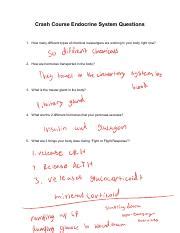 Crash Course Endocrine System Questions
1. How many different types of chemical messengers are working in your body right now?
50 different chemicals
2. How are hormones transported in the body?
They use the circulatory system
3. What is the master gland in the body?
pituitary gland
4. What are the 2 different hormones that your pancreas secretes?
Insulin and glucagon
5. What are 3 things your body does during "Fight or Flight Response"?
1. release CRH
2. Release ACTH
3. releases glucocorticoid
mineral corticoid
shutting down
non-emergency